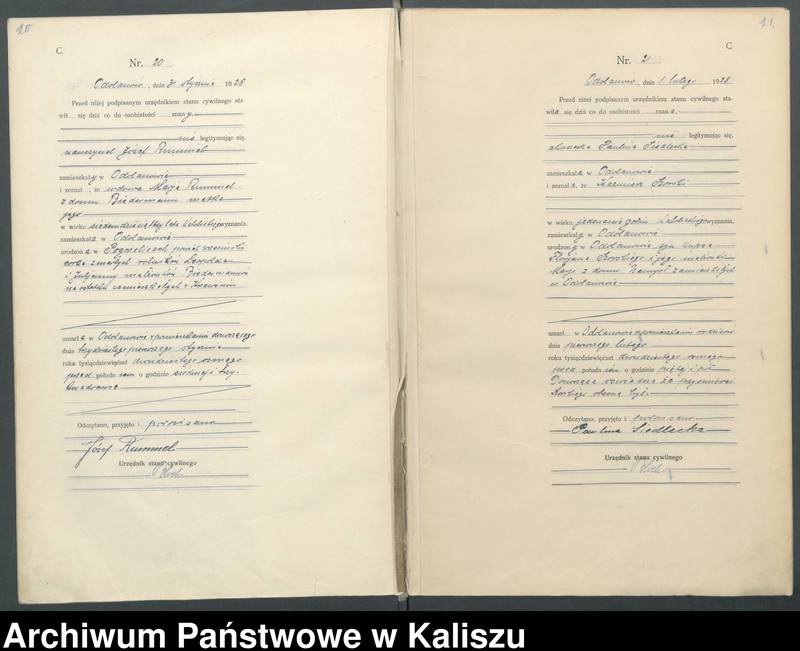 20
C.
Nr. 20
Odolanów, dnia 31 stycznia 1928
Przed niżej podpisanym urzędnikiem stanu cywilnego sta-
wił się dziś co do osobistości znany
nie legitymując się,
nauczyciel Józef Rummel
zamieszkały w Odolanowie
i zeznał, że wdowa Marja Rummel
z domu Biedermann matka
jego
w wieku lat katolickiego wyznania,
zamieszkała w Odolanowie
urodzona w powiat
córka zmarłych rolników
i Juljanny małżonków Biedermannów
na ostatku zamieszkałych w
umarła w Odolanowie w pomieszkaniu donoszącego
dnia trzydziestego pierwszego stycznia
roku tysiącdziewięćset dwudziestego ósmego
przed południem o godzinie siódmej i trzy
kwadranse
Odczytano, przyjęto i podpisano
Józef Rummel
Urzędnik stanu cywilnego
21.
C
Nr. 21
Odolanów, dnia 1 lutego 1928
Przed niżej podpisanym urzędnikiem stanu cywilnego sta-
wiła się dziś co do osobistości znana
nie legitymując się,
akuszerka Paulina Siedlecka
zamieszkała w Odolanowie
i zeznała, że Kazimierz
w wieku jedenaście godzin katolickiego wyznania,
zamieszkały w Odolanowie
urodzony w Odolanowie syn
Florjana i jego małżonki
Marji z domu Namysł zamieszkałych
w Odolanowie
umarł w Odolanowie w pomieszkaniu rodziców
dnia pierwszego lutego
roku tysiącdziewięćset dwudziestego ósmego
przed południem o godzinie piątej i pół
Donosząca oświadcza że przy śmierci
obecną była.
Odczytano, przyjęto i podpisano
Paulina Siedlecka
Urzędnik stanu cywilnego
Archiwum Państwowe w Kaliszu